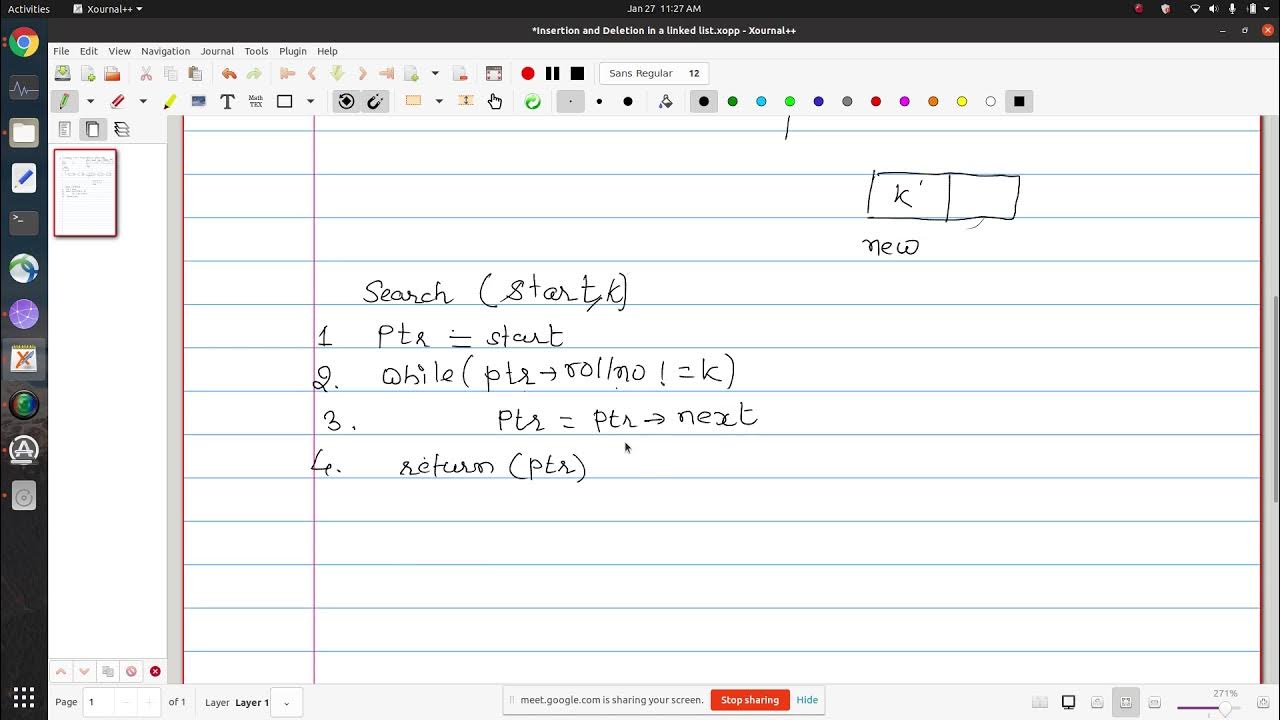 Activities
Xournal++
Jan 27 11:27 AM
*Insertion and Deletion in a linked list.xopp - Xournal++
File Edit View Navigation Journal Tools Plugin Help
Sans Regular 12
Math
TEX
K'
new
Search (Start,K)
1 Ptr = start
2. While( ptr→rollno != K)
3. Ptr = ptr→next
4. return (ptr)
Page 1 of 1 Layer Layer 1
meet.google.com is sharing your screen. Stop sharing Hide
271%